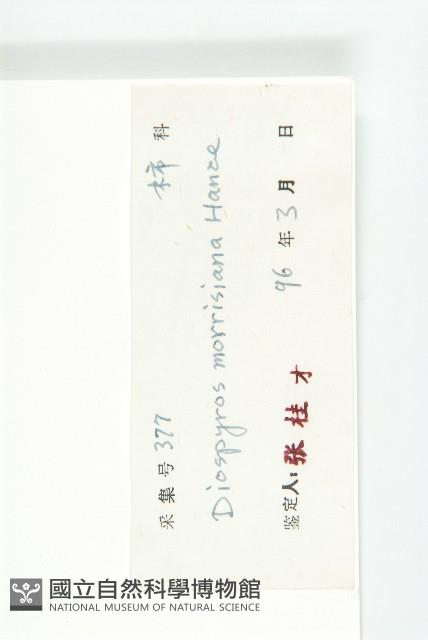 采集号 377 柿科
Diospyros morrisiana Hance
鉴定人: 张桂才 96年3月 日
國立自然科學博物館
NATIONAL MUSEUM OF NATURAL SCIENCE